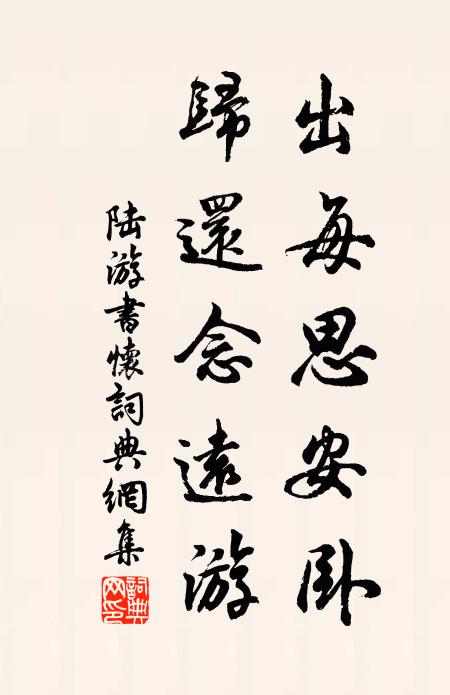 出每思安卧
歸還念遠游
陆游書懷詞典網集
詞典网印